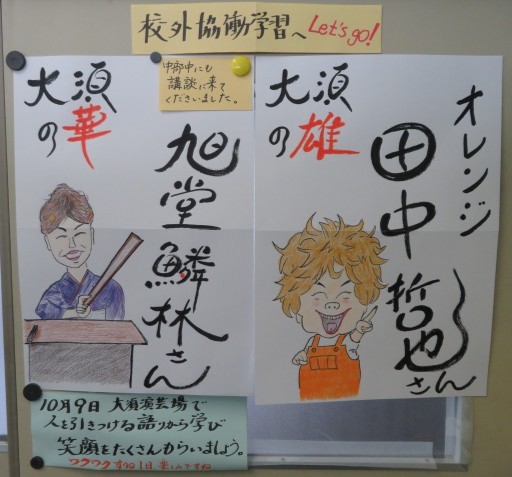 校外協働学習へ Let's go!
中部中にも
講談に来て
くださいました。
大須
の華
旭堂鱗林さん
大須
の雄
オレンジ
田中哲也さん
10月9日 大須演芸場で
人を引きつける語りから学び
笑顔をたくさんもらいましょう。